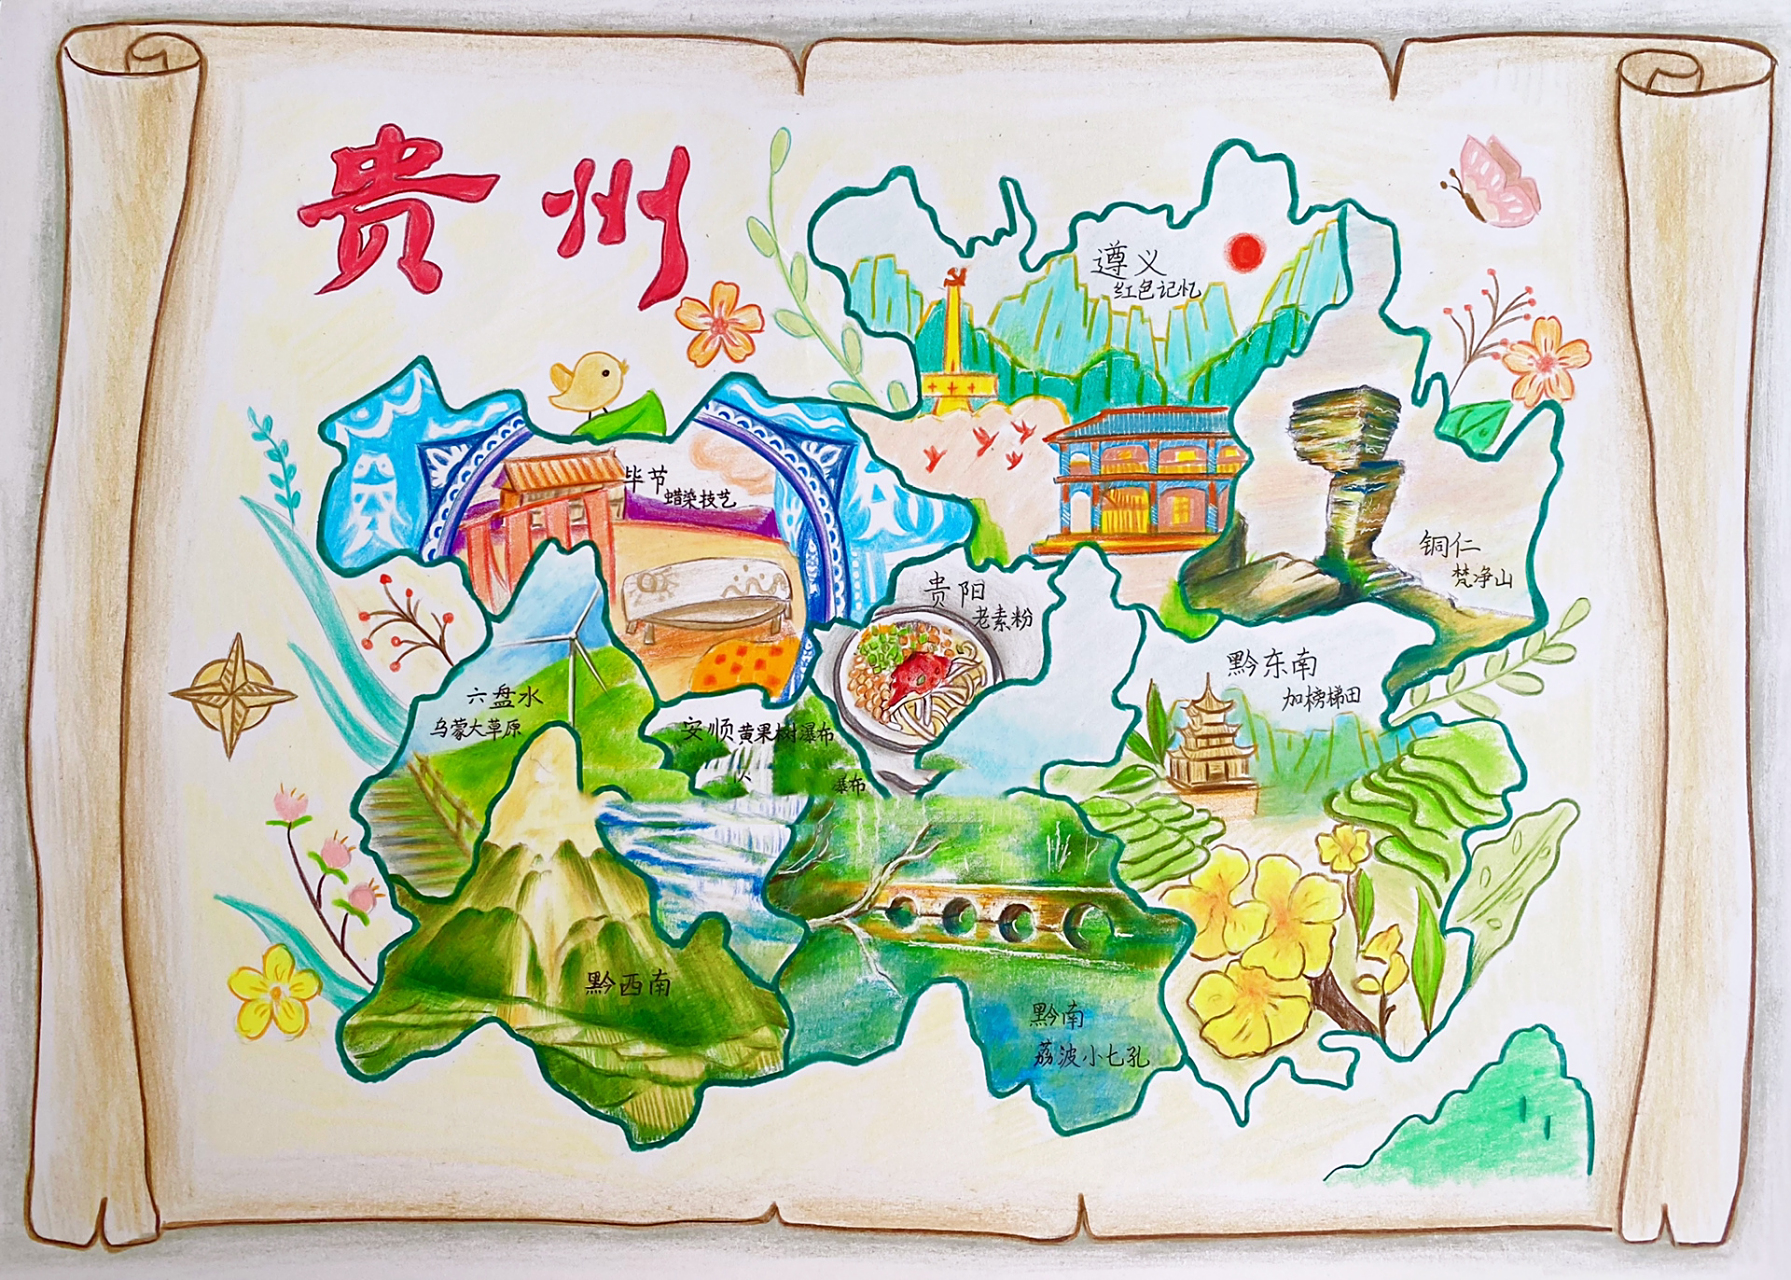 贵州
遵义
红色记忆
毕节
蜡染技艺
铜仁
梵净山
贵阳
老素粉
黔东南
加榜梯田
六盘水
乌蒙大草原
安顺黄果树瀑布
瀑布
黔西南
黔南
荔波小七孔